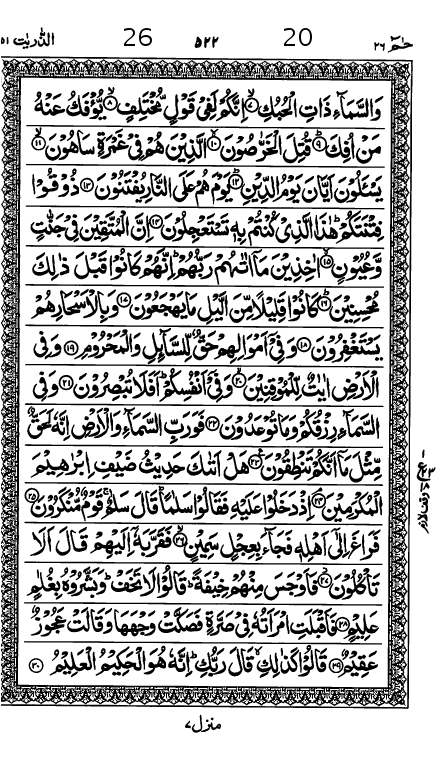 حٰمٓ ٢٦ 20 ٥٢٢ 26 الذّٰریٰت ٥١
وَالسَّمَآءِ ذَاتِ الْحُبُكِ ۙ﴿۷﴾ اِنَّكُمْ لَفِیْ قَوْلٍ مُّخْتَلِفٍ ۙ﴿۸﴾ یُّؤْفَكُ عَنْهُ
مَنْ اُفِكَ ؕ﴿۹﴾ قُتِلَ الْخَرّٰصُوْنَ ۙ﴿۱۰﴾ الَّذِیْنَ هُمْ فِیْ غَمْرَةٍ سَاهُوْنَ ۙ﴿۱۱﴾
یَسْـَٔلُوْنَ اَیَّانَ یَوْمُ الدِّیْنِ ؕ﴿۱۲﴾ یَوْمَ هُمْ عَلَی النَّارِ یُفْتَنُوْنَ ﴿۱۳﴾ ذُوْقُوْا
فِتْنَتَكُمْ ؕ هٰذَا الَّذِیْ كُنْتُمْ بِهٖ تَسْتَعْجِلُوْنَ ﴿۱۴﴾ اِنَّ الْمُتَّقِیْنَ فِیْ جَنّٰتٍ
وَّعُیُوْنٍ ۙ﴿۱۵﴾ اٰخِذِیْنَ مَاۤ اٰتٰىهُمْ رَبُّهُمْ ؕ اِنَّهُمْ كَانُوْا قَبْلَ ذٰلِكَ
مُحْسِنِیْنَ ؕ﴿۱۶﴾ كَانُوْا قَلِیْلًا مِّنَ الَّیْلِ مَا یَهْجَعُوْنَ ﴿۱۷﴾ وَبِالْاَسْحَارِ هُمْ
یَسْتَغْفِرُوْنَ ﴿۱۸﴾ وَفِیْۤ اَمْوَالِهِمْ حَقٌّ لِّلسَّآئِلِ وَالْمَحْرُوْمِ ﴿۱۹﴾ وَفِی
الْاَرْضِ اٰیٰتٌ لِّلْمُوْقِنِیْنَ ۙ﴿۲۰﴾ وَفِیْۤ اَنْفُسِكُمْ ؕ اَفَلَا تُبْصِرُوْنَ ﴿۲۱﴾ وَفِی
السَّمَآءِ رِزْقُكُمْ وَمَا تُوْعَدُوْنَ ﴿۲۲﴾ فَوَرَبِّ السَّمَآءِ وَالْاَرْضِ اِنَّهٗ لَحَقٌّ
مِّثْلَ مَاۤ اَنَّكُمْ تَنْطِقُوْنَ ﴿۲۳﴾ هَلْ اَتٰىكَ حَدِیْثُ ضَیْفِ اِبْرٰهِیْمَ
الْمُكْرَمِیْنَ ۘ﴿۲۴﴾ اِذْ دَخَلُوْا عَلَیْهِ فَقَالُوْا سَلٰمًا ؕ قَالَ سَلٰمٌ ۚ قَوْمٌ مُّنْكَرُوْنَ ﴿۲۵﴾
فَرَاغَ اِلٰۤی اَهْلِهٖ فَجَآءَ بِعِجْلٍ سَمِیْنٍ ۙ﴿۲۶﴾ فَقَرَّبَهٗۤ اِلَیْهِمْ قَالَ اَلَا
تَاْكُلُوْنَ ؗ﴿۲۷﴾ فَاَوْجَسَ مِنْهُمْ خِیْفَةً ؕ قَالُوْا لَا تَخَفْ ؕ وَبَشَّرُوْهُ بِغُلٰمٍ
عَلِیْمٍ ﴿۲۸﴾ فَاَقْبَلَتِ امْرَاَتُهٗ فِیْ صَرَّةٍ فَصَكَّتْ وَجْهَهَا وَقَالَتْ عَجُوْزٌ
عَقِیْمٌ ﴿۲۹﴾ قَالُوْا كَذٰلِكِ ۙ قَالَ رَبُّكِ ؕ اِنَّهٗ هُوَ الْحَكِیْمُ الْعَلِیْمُ ﴿۳۰﴾
منزل ٧